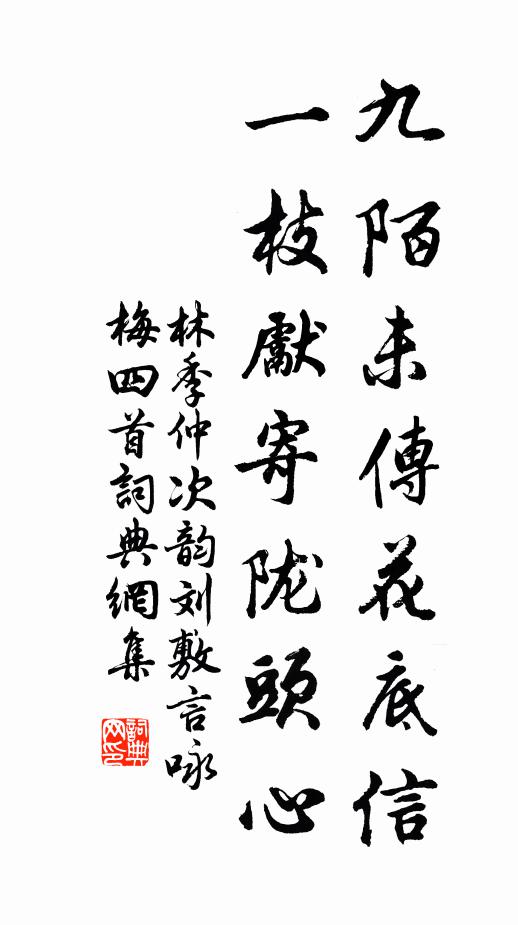 九陌未傳花底信
一枝獻寄陇頭心
林季仲次韵刘敷言咏
梅四首詞典網集
詞典网印